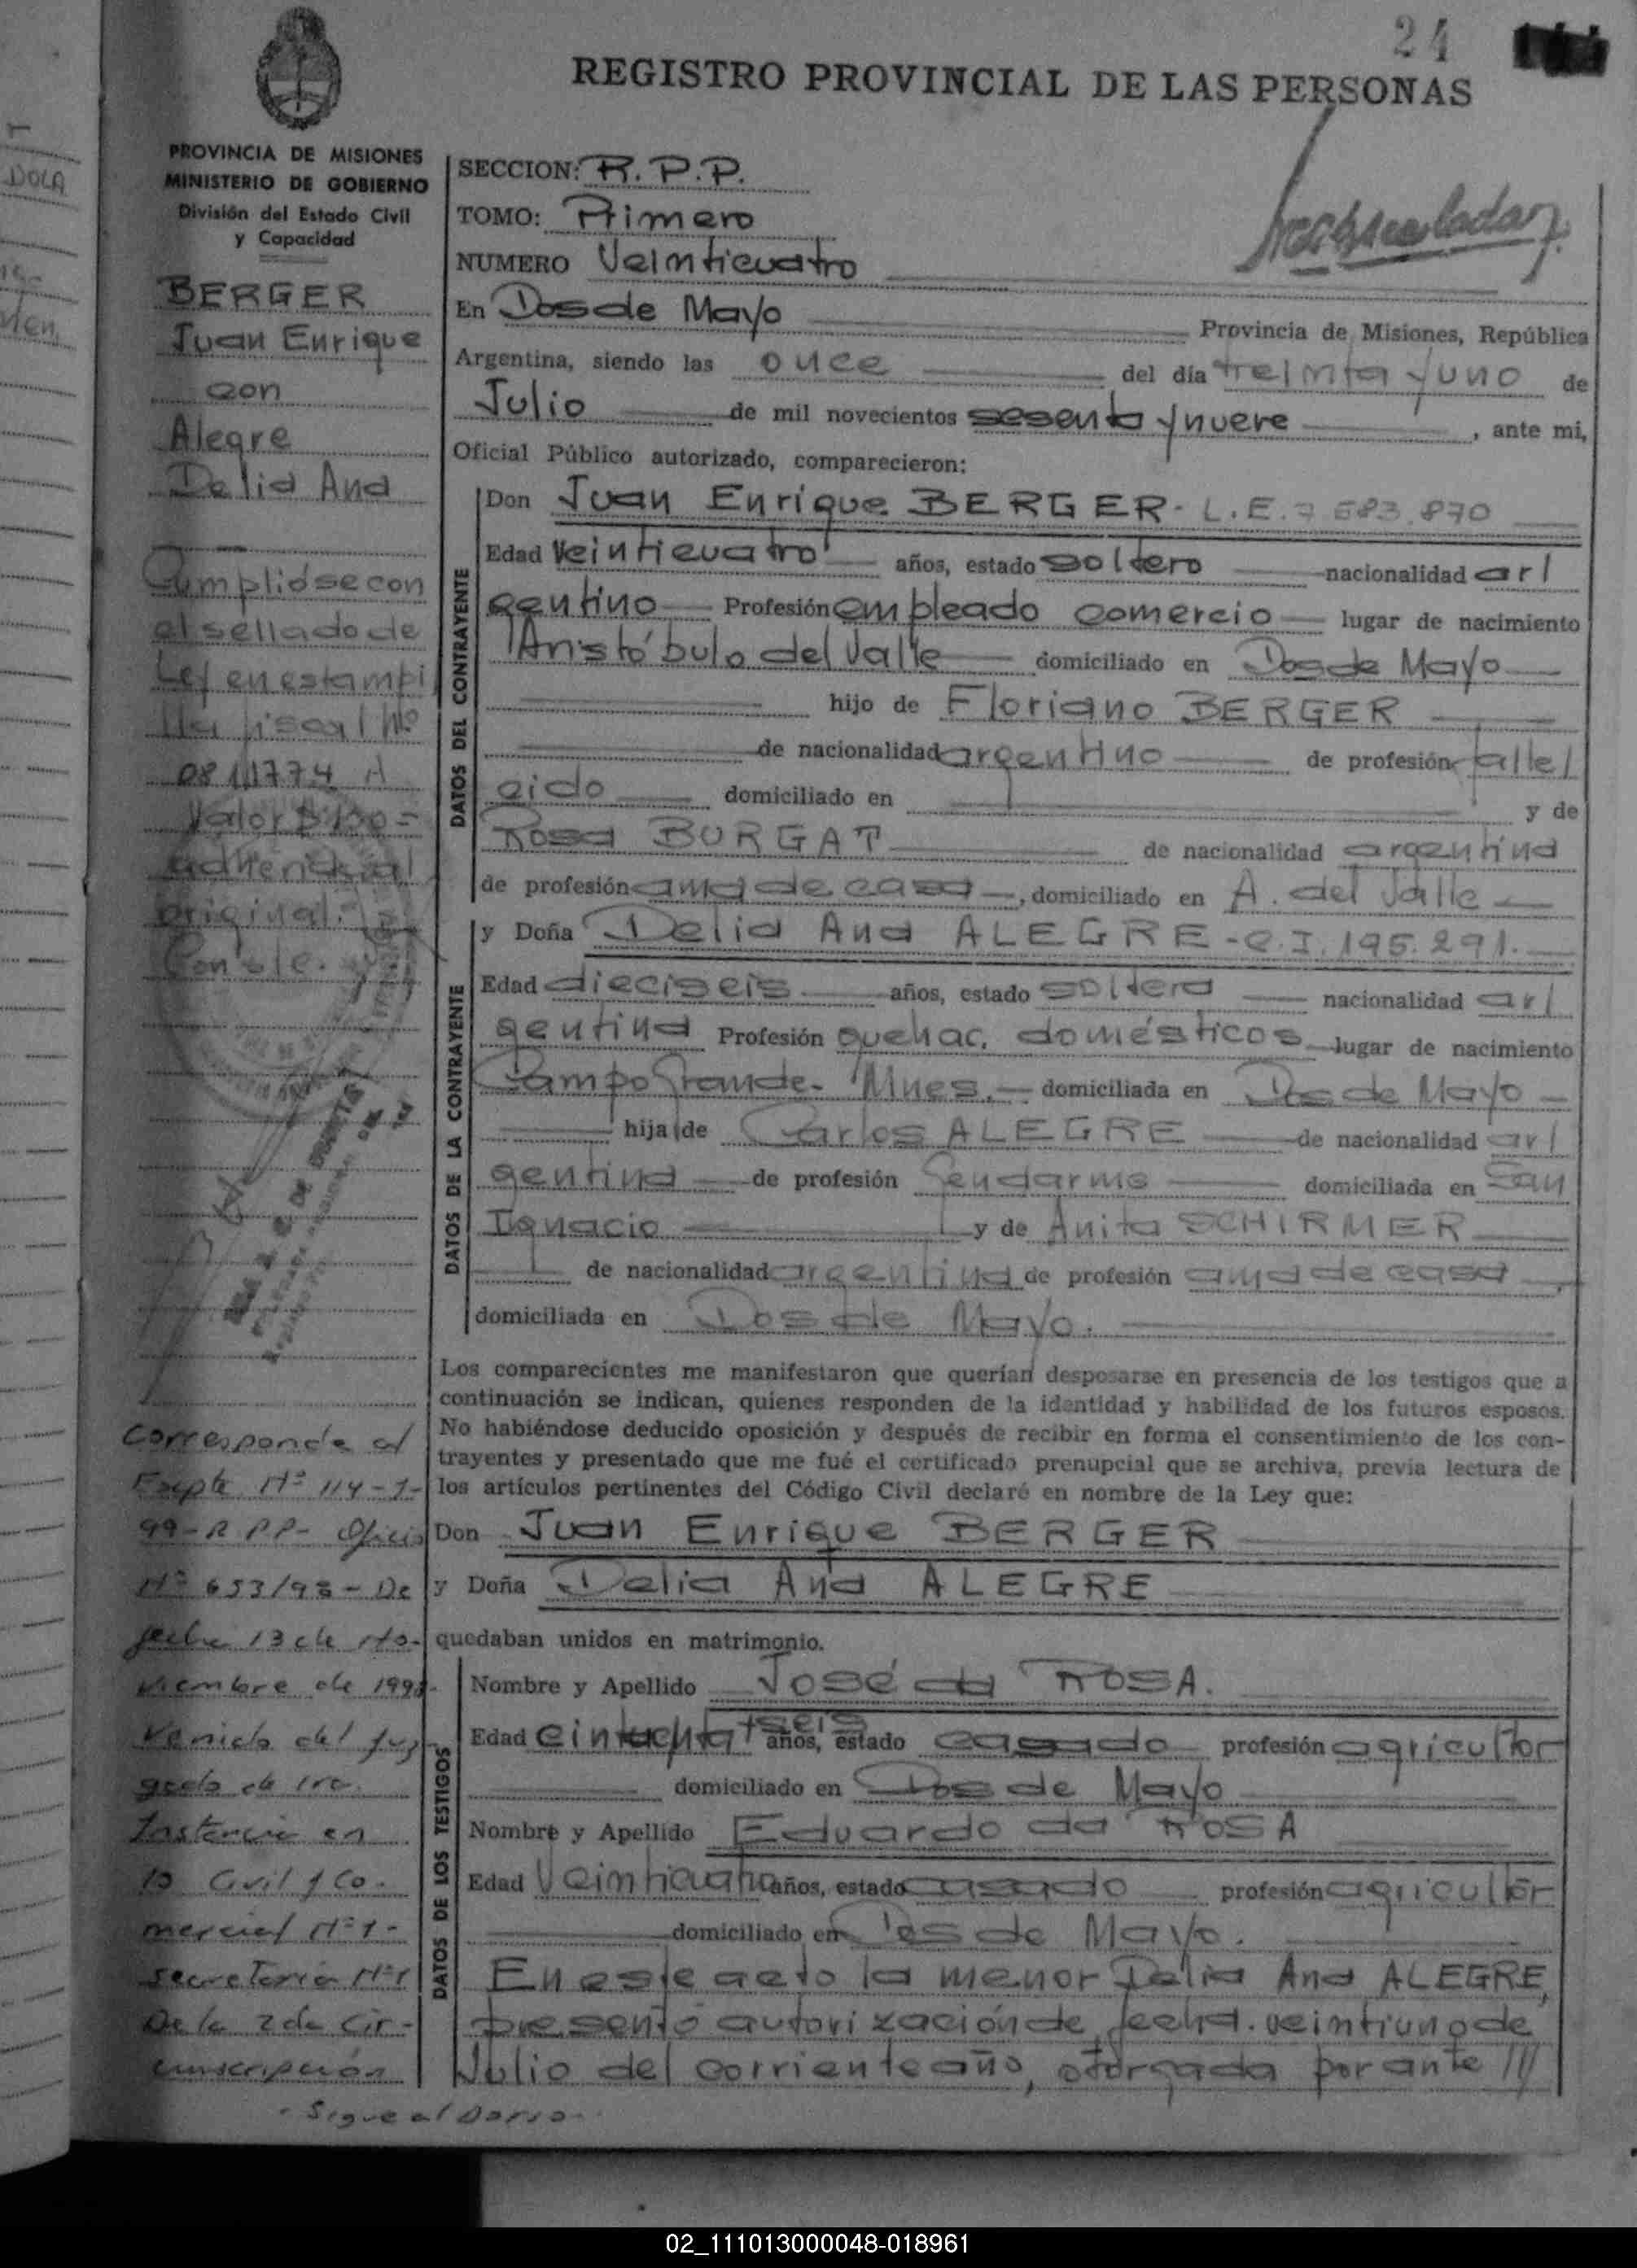 24
REGISTRO PROVINCIAL DE LAS PERSONAS
PROVINCIA DE MISIONES
MINISTERIO DE GOBIERNO
División del Estado Civil
y Capacidad
BERGER
Juan Enrique
con
Alegre
Delia Ana
Cumpliose con
el sellado de
Ley en estampi
lla fiscal Nº
0811774 A
Valor $ 100=
adherida al
original.
Conste.
Corresponde al
Expte Nº 114-1-
99-R.P.P- Oficio
Nº 653/98 - De
fecha 13 de No-
viembre de 1998-
Venido del Juz-
gado de 1ra.
Instancia en
lo Civil y Co-
mercial Nº 1-
Secretaria Nº 1
De la 2da Cir-
cunscripción
- Sigue al Dorso -
SECCION: R.P.P.
TOMO: Primero
NUMERO Veinticuatro
En Dos de Mayo Provincia de Misiones, República
Argentina, siendo las once del día treinta y uno de
Julio de mil novecientos sesenta y nueve, ante mi,
Oficial Público autorizado, comparecieron:
DATOS DEL CONTRAYENTE
Don Juan Enrique BERGER - L.E. 7.583.870
Edad veinticuatro años, estado soltero nacionalidad ar/
gentino Profesión empleado comercio lugar de nacimiento
Aristóbulo del Valle domiciliado en Dos de Mayo
hijo de Floriano BERGER
de nacionalidad argentino de profesión falle/
cido domiciliado en y de
Rosa BURGAT de nacionalidad argentina
de profesión ama de casa, domiciliado en A. del Valle
DATOS DE LA CONTRAYENTE
y Doña Delia Ana ALEGRE - C.I. 195.291.
Edad dieciseis años, estado soltera nacionalidad ar/
gentina Profesión quehac. domésticos lugar de nacimiento
Campo Grande- Mnes. domiciliada en Dos de Mayo
hija de Carlos ALEGRE de nacionalidad ar/
gentina de profesión Gendarme domiciliada en San
Ignacio y de Anita SCHIRMER
de nacionalidad argentina de profesión ama de casa,
domiciliada en Dos de Mayo.
Los comparecientes me manifestaron que querían desposarse en presencia de los testigos que a
continuación se indican, quienes responden de la identidad y habilidad de los futuros esposos.
No habiéndose deducido oposición y después de recibir en forma el consentimiento de los con-
trayentes y presentado que me fué el certificado prenupcial que se archiva, previa lectura de
los artículos pertinentes del Código Civil declaré en nombre de la Ley que:
Don Juan Enrique BERGER
y Doña Delia Ana ALEGRE
quedaban unidos en matrimonio.
DATOS DE LOS TESTIGOS
Nombre y Apellido José da ROSA.
Edad seis años, estado casado profesión agricultor
domiciliado en Dos de Mayo
Nombre y Apellido Eduardo da ROSA
Edad Veinticuatro años, estado casado profesión agricultor
domiciliado en Dos de Mayo.
En este acto la menor Delia Ana ALEGRE,
presentó autorización de fecha veintiuno de
Julio del corriente año, otorgada por ante ///
02_111013000048-018961